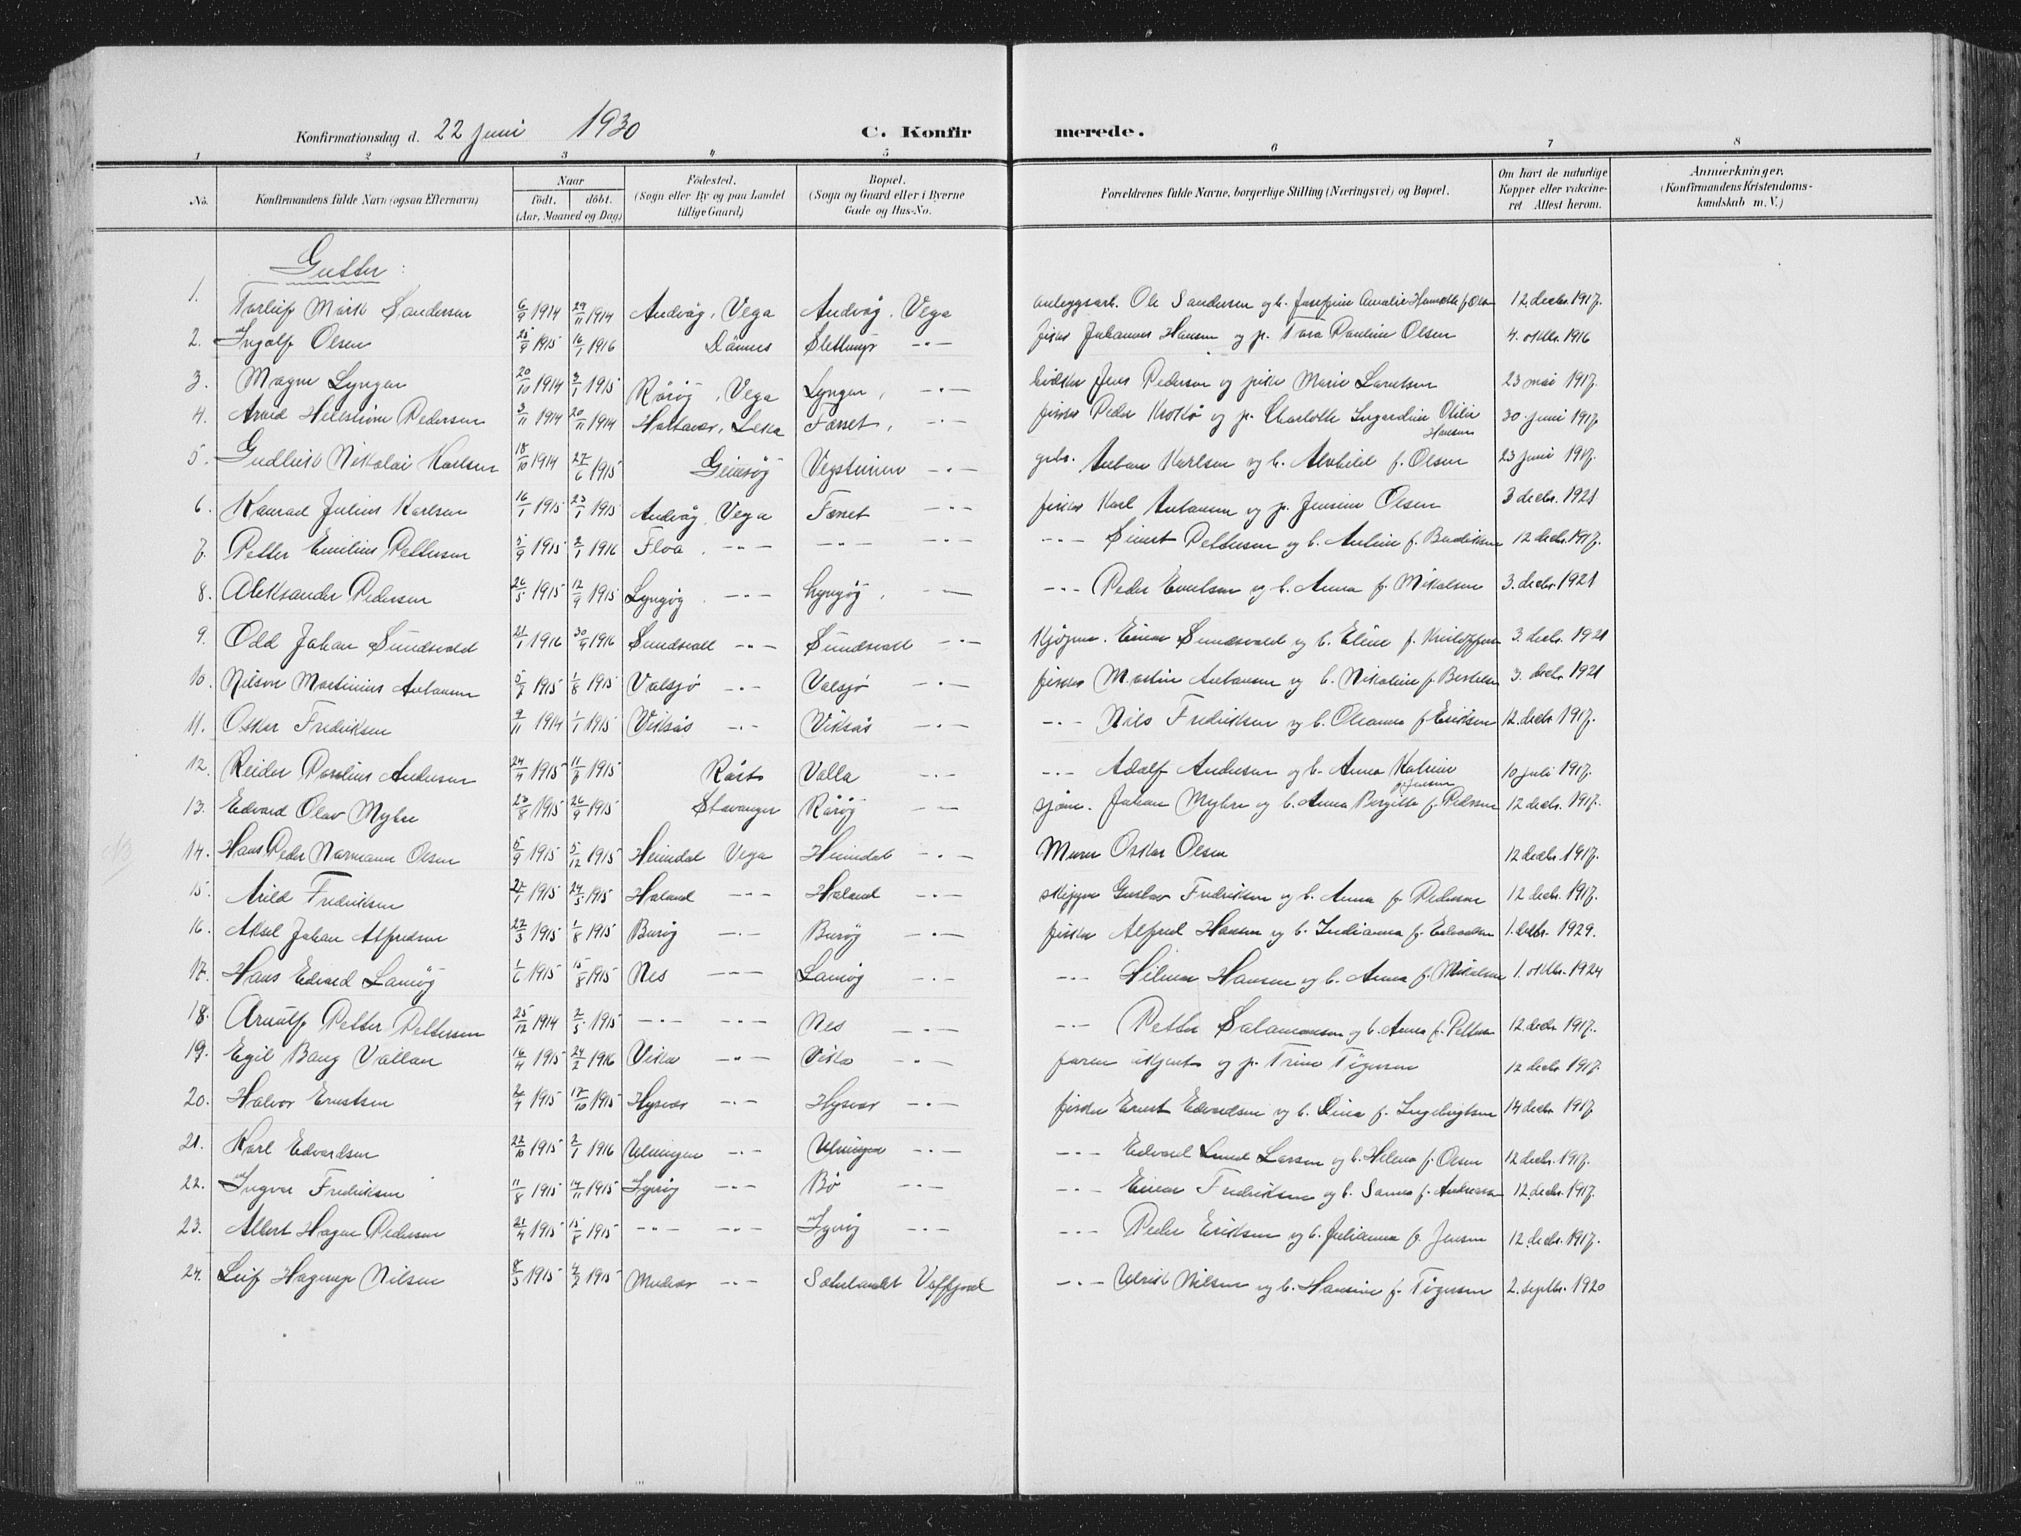 Konfirmationsdag d. 22 juni 1930 C. Konfirmerede.
1 2 3 4 5 6 7 8
No. Konfirmandens fulde Navn (ogsaa Efternavn) Naar födt. döbt. (Aar, Maaned og Dag) Födested. (Sogn eller By og paa Landet tillige Gaard) Bopæl. (Sogn og Gaard eller i Byerne Gade og Hus-No. Forældrenes fulde Navne, borgerlige Stilling (Næringsvei) og Bopæl. Om havt de naturlige Kopper eller vakcineret. Attest herom. Anmærkninger. (Konfirmandens Kristendomskundskab m. V.)
Gutter:
1. Torleif Mørk Sandersen 6/9 1914 29/11 1914 Andvåg, Vega Andvåg, Vega anleggsarb. Ole Sandersen og h. Josefine Amalie 12 decbr. 1917.
2. Ingolf Olsen 1915 16/1 1916 Dønnes Slettmyr -"- fisker Johannes Hansen og p. Tora Pauline Olsen 4. oktbr. 1916
3. Magne Lyngen 20/10 1914 3/1 1915 Rørøy, Vega Lyngen, -"- Jens Pedersen og pike Marie Larntsen 23 mai 1917.
4. Arvid Hellstrøm Pedersen 3/11 1914 20/11 1914 Hortavær, Leka Færset, -"- fisker Peder Krokø og p. Charlotte Ingardine Otilie Hansen 30 juni 1917
5. Gudleik Nikolai Karlsen 18/10 1914 27/6 1915 Gimsøy Vegsteinen -"- gbr. Anton Karlsen og h. Alvhild f. Olsen 23 juni 1917.
6. Konrad Julius Karlsen 16/1 1915 23/1 1915 Andvåg, Vega Færset -"- fisker Karl Antonsen og p. Jensine Olsen 3 decbr. 1921.
7. Petter Emilius Pettersen 5/9 1915 2/1 1916 Floa. -"- -"- -"- -"- Sivert Pettersen og h. Antine f. Bendiksen 12 decbr. 1917.
8. Aleksander Pedersen 26/5 1915 12/9 1915 Lyngøy -"- Lyngøy, -"- -"- Peder Emilsen og h. Anna f. Mikalsen 3. decbr. 1921
9. Odd Johan Sundsvold 21/1 1916 30/4 1916 Sundsvoll -"- Sundsvoll -"- Kjøpm. Einar Sundsvold og h. Eline f. Kristoffersen 3. decbr. 1921
10. Nilson Martinius Antonsen 5/7 1915 1/8 1915 Valsjø -"- Valsjø -"- fisker Martin Antonsen og h. Nikoline f. Bertelsen 3. decbr. 1921
11. Oskar Fredriksen 9/11 1914 1/1 1915 Viksås -"- Viksås -"- -"- Nils Fredriksen og h. Oleanna f. Eriksen 12. decbr 1917.
12. Reidar Parelius Andersen 24/4 1915 11/8 1915 Røst Valla -"- -"- Adolf Andersen og h. Anna Katrine f. Jensen 10 juli 1917.
13. Edvard Olav Myhre 23/8 1915 26/9 1915 Stavanger Rørøy -"- sjøm. Johan Myhre og h. Anna Bergitte f. Pedersen 12 decbr. 1917.
14. Hans Peder Normann Olsen 5/9 1915 5/12 1915 Heimdal Vega Heimdal -"- Murer Oskar Olsen 12 decbr. 1917.
15. Arild Fredriksen 1915 24/5 1915 Holand -"- Holand -"- skipper Gustav Fredriksen og h. Anna f. Pedersen 12 decbr. 1917.
16. Aksel Johan Alfredsen 22/3 1915 1/8 1915 Burøy -"- Burøy -"- fisker Alfred Hansen og h. Indianna f. Edvardsen 1. decbr. 1929.
17. Hans Edvard Lamøy 1/6 1915 15/8 1915 Nes -"- Lamøy -"- -"- Hilmar Hansen og h. Anna f. Mikalsen 1. oktbr. 1924
18. Arnulf Petter Pettersen 25/12 1914 2/5 1915 -"- -"- Nes -"- -"- Petter Salamonsen og h. Anna f. Pettersen 12 decbr. 1917.
19. Egil Bang Vallan 16/4 1915 24/2 1916 Vika -"- Vika -"- faren ukjent og p. Trine Tøgersen 12 decbr. 1917.
20. Halvor Ernstsen 2/7 1915 17/10 1915 Hysvær -"- Hysvær -"- fisker Ernst Edvardsen og h. Dina f. Ingebrigtsen 14 decbr. 1917
21. Karl Edvardsen 22/10 1915 2/1 1916 Ulningen -"- Ulningen -"- -"- Edvard Lund Larsen og h. Helena f. Olsen 12 decbr. 1917.
22. Ingvar Fredriksen 11/8 1915 14/11 1915 Igerøy -"- Bø -"- -"- Einar Fredriksen og h. Sanna f. Andreassen 12 decbr. 1917.
23. Albert Hagen Pedersen 21/4 1915 15/8 1915 -"- -"- Igerøy -"- -"- Peder Eriksen og h. Julianna f. Jensen 12. decbr. 1917.
24. Leif Hagerup Nilsen 8/3 1915 4/7 1915 Mudvær -"- Sølvlandet Vefsfjord -"- Ulrik Nilsen og h. Hansine f. Tøgersen 2. septbr. 1920